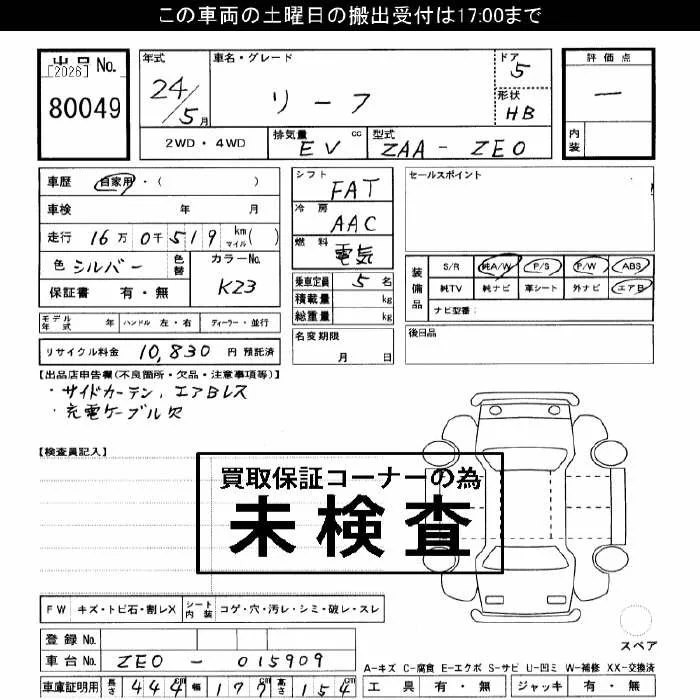 この車両の土曜日の搬出受付は17:00まで
出品 No.
[2026]
80049
年式
24/5月
車名・グレード
リーフ
ドア
5
形状
HB
評価点
ー
内装
2WD・4WD
排気量 cc
EV
型式
ZAA-ZE0
車歴 自家用・( )
車検 年 月
走行 16万0千519 km マイル ( )
色 シルバー 色替
カラーNo.
K23
保証書 有・無
シフト
FAT
冷房
AAC
燃料
電気
乗車定員 5 名
積載量 kg
総重量 kg
名変期限
月 日
セールスポイント
装備品
S/R 純A/W P/S P/W ABS
純TV 純ナビ 革シート 外ナビ エアB
ナビ型番:
後日品
モデル年式 年 ハンドル 左・右 ディーラー・並行
リサイクル料金 10,830 円 預託済
【出品店申告欄(不良箇所・欠品・注意事項等)】
・サイドカーテン,エアBレス
・充電ケーブル欠
【検査員記入】
買取保証コーナーの為
未検査
FW キズ・トビ石・割レX シート内装 コゲ・穴・汚レ・シミ・破レ・スレ
登録 No.
車台 No. ZE0-015909
車庫証明用 長さ 444cm 幅 177cm 高さ 154cm
スペア
A-キズ C-腐食 E-エクボ S-サビ U-凹ミ W-補修 XX-交換済
工具 有・無 ジャッキ 有・無